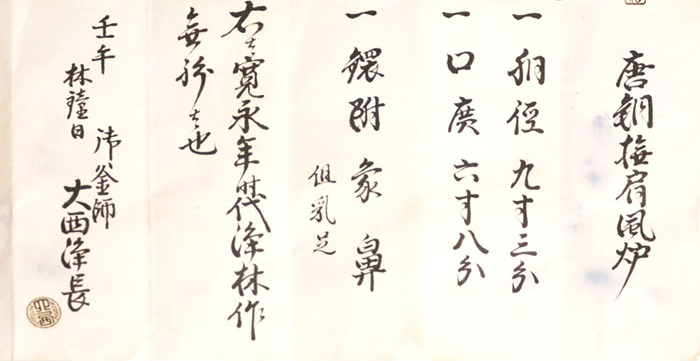 唐銅撫肩風炉
一 胴径 九寸三分
一 口廣 六寸八分
一 鐶附 象鼻
但乳足
右ハ寛永年時代浄林作
無紛者也
壬午 林鐘日
御釜師
大西浄長